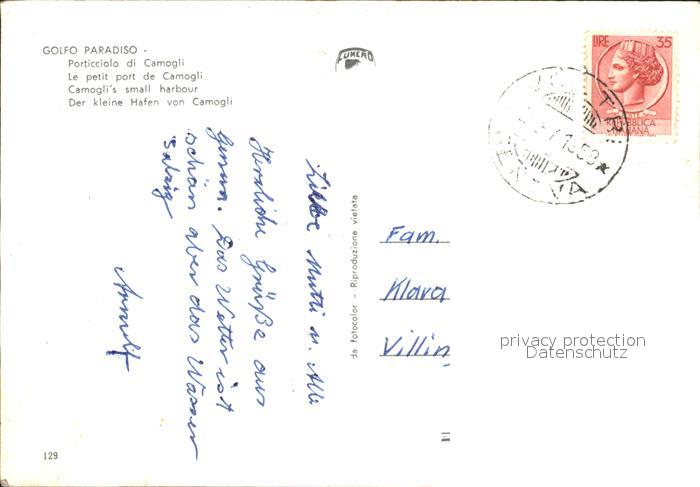 GOLFO PARADISO -
Porticciolo di Camogli
Le petit port de Camogli
Camogli's small harbour
Der kleine Hafen von Camogli
FUMERO
LIRE 35
REPUBBLICA
ITALIANA
Liebe Mutti u. Alli
Herzliche Grüße aus
Genua. Das Wetter ist
schön aber das Wasser
salzig
Arnulf
da fotocolor - Riproduzione vietata
Fam.
Klara
Villin
privacy protection
Datenschutz
129